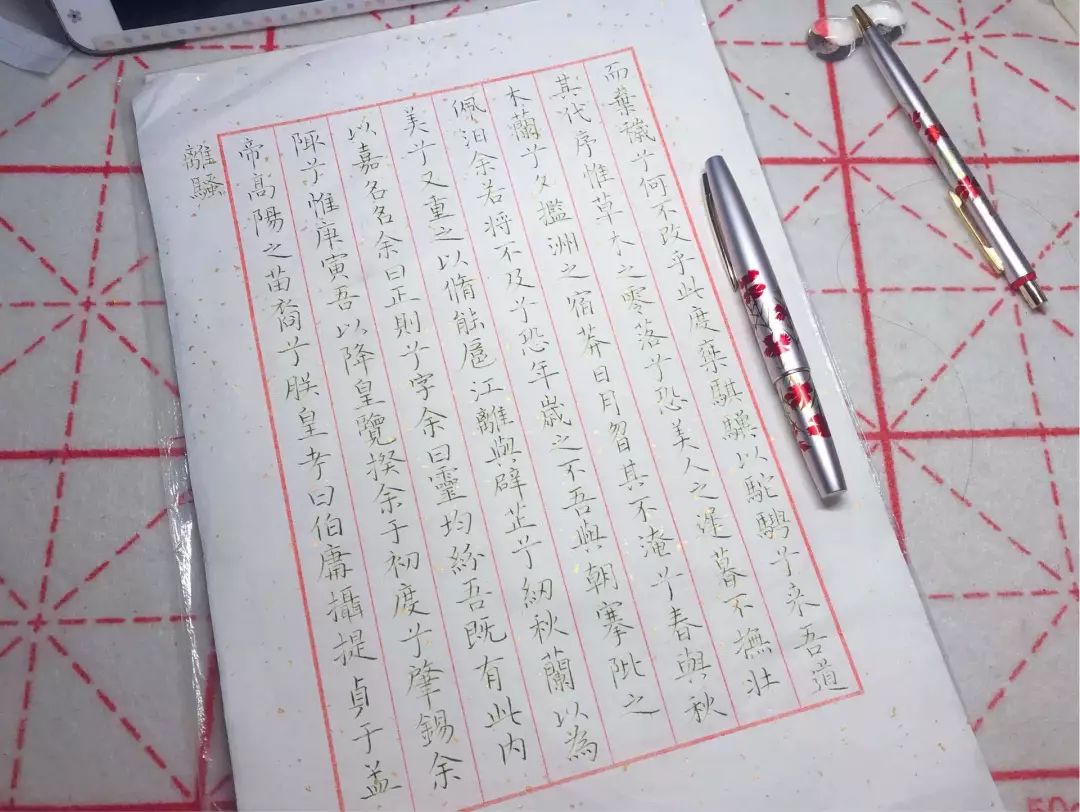 離騷
帝高陽之苗裔兮朕皇考曰伯庸攝提貞于孟
陬兮惟庚寅吾以降皇覽揆余于初度兮肇錫余
以嘉名名余曰正則兮字余曰靈均紛吾既有此内
美兮又重之以脩能扈江離與辟芷兮紉秋蘭以為
佩汩余若将不及兮恐年歲之不吾與朝搴阰之
木蘭兮夕攬洲之宿莽日月曶其不淹兮春與秋
其代序惟草木之零落兮恐美人之遲暮不撫壯
而棄穢兮何不改乎此度椉騏驥以駝騁兮来吾道